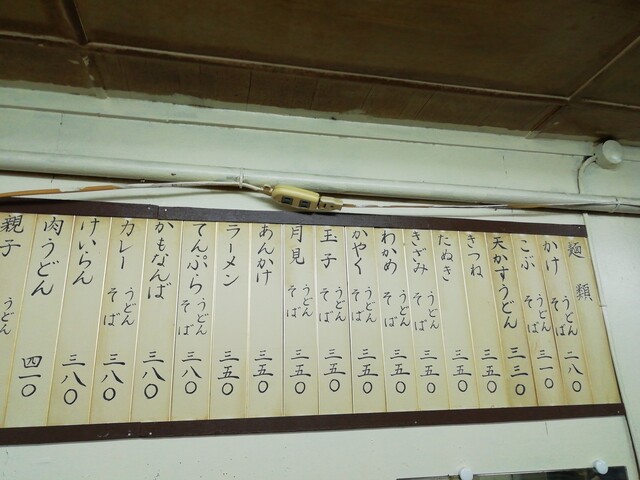 麺類
かけ うどん そば 二八〇
こぶ うどん そば 三一〇
天かすうどん 三三〇
きつね 三五〇
たぬき 三五〇
きざみ うどん そば 三五〇
わかめ うどん そば 三五〇
かやく うどん そば 三五〇
玉子 うどん そば 三五〇
月見 うどん そば 三五〇
あんかけ 三五〇
ラーメン 三五〇
てんぷら うどん そば 三八〇
かもなんば 三八〇
カレー うどん そば 三八〇
けいらん 三八〇
肉うどん 四一〇
親子 うどん